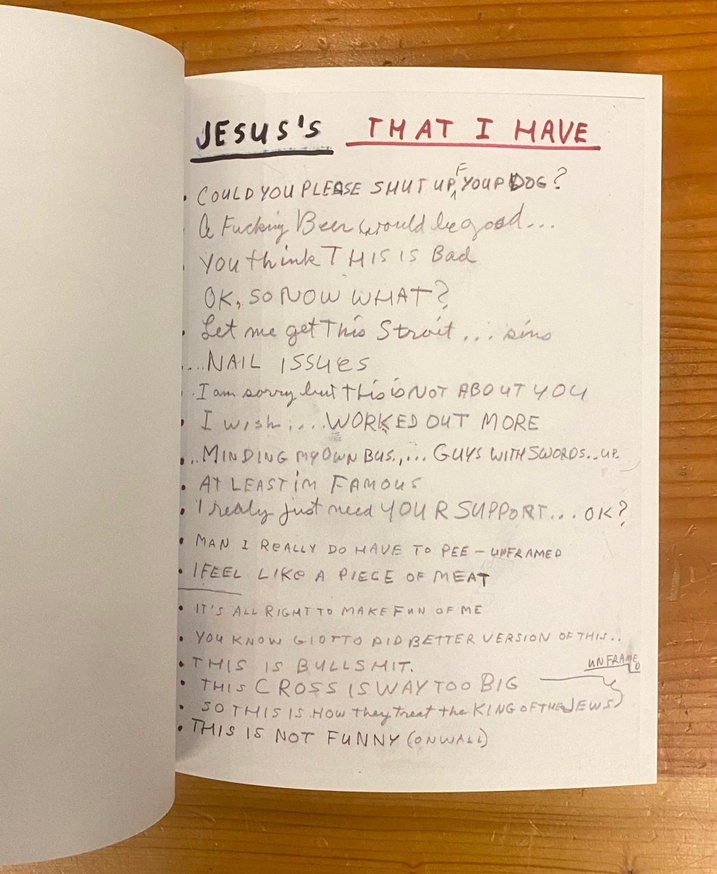 JESUS'S THAT I HAVE
• COULD YOU PLEASE SHUT UP, F YOUP DOG?
A Fucking Beer would be good...
• YOU think THIS IS Bad
OK, SO NOW WHAT?
• Let me get This Strait... sins
...NAIL ISSUES
• I am sorry but this is NOT ABOUT YOU
• I wish.... WORKED OUT MORE
•..MINDING MY OWN BUS.,... GUYS WITH SWORDS.. UP.
• AT LEAST I'M FAMOUS
• I realy just need YOUR SUPPORT... OK?
• MAN I REALLY DO HAVE TO PEE - UNFRAMED
• I FEEL LIKE A PIECE OF MEAT
• IT'S ALL RIGHT TO MAKE FUN OF ME
• YOU KNOW GIOTTO DID BETTER VERSION OF THIS..
• THIS IS BULLSHIT. UNFRAMED
• THIS CROSS IS WAY TOO BIG
• SO THIS IS HOW They treat the KING OF THE JEWS
• THIS IS NOT FUNNY (ON WALL)